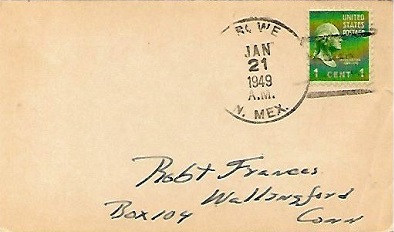 ROWE
JAN
21
1949
A.M.
N. MEX.
UNITED
STATES
POSTAGE
1 CENT 1
Robt Frances
Wallingford
Box 104 Conn